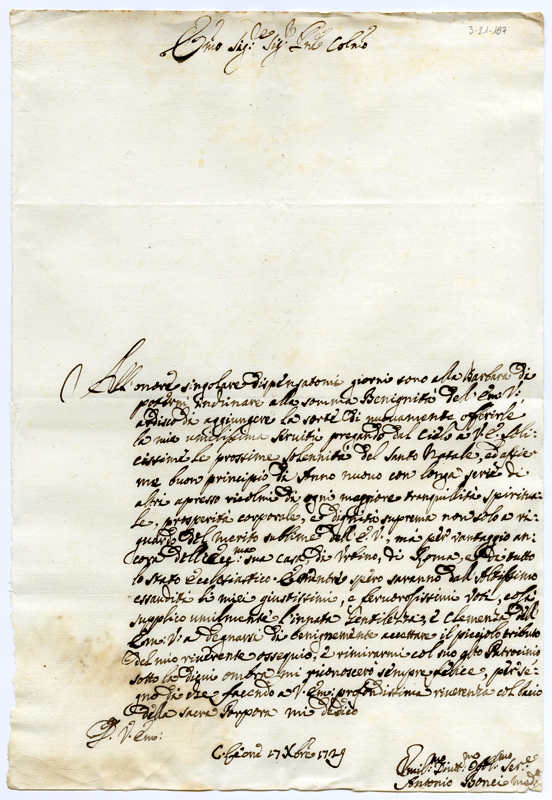 3-21-187
Emo Sig.re Sig.r Pne Colmo
All' onore singolare dispensatomi giorni sono alla Barbara di
potermi inchinare alla somma Benignità dell' Em: V:
ardisco di aggiungere la sorte di nuovamente offerirle
la mia umilissima servitù pregando dal Cielo a V. E. feli-
cissime le prossime solennità del Santo Natale, ed assie-
me buon principio di Anno nuovo con longa serie di
altri apresso ricolmi di ogni maggiore tranquilità spiritua-
le, prosperità corporale, e dignità suprema non solo a ri-
guardo del merito sublime dell' E. V., mà per vantaggio an-
cora dell' Ecc.ma sua casa di Urbino, di Roma, e di tutto
lo Stato Ecclesiastico. E mentre spero saranno dall' Altissimo
essauditi li miei giustissimi, e fervorosissimi voti, così
supplico umilmente l'innata Gentilezza, e Clemenza dell'
Em: V: a degnarsi di benignamente accettare il piccolo tributo
del mio riverente ossequio, e rimirarmi col suo alto Patrocinio
sotto la di cui ombra mi conoscerò sempre felice, per se-
gno di che facendo a V. Em: profondissima riverenza col bacio
della sacra Porpora mi dedico
D. V. Em:
17 Xbre 1729
Umil.mo Devot.mo Obb.mo Ser.e
Antonio Bonci